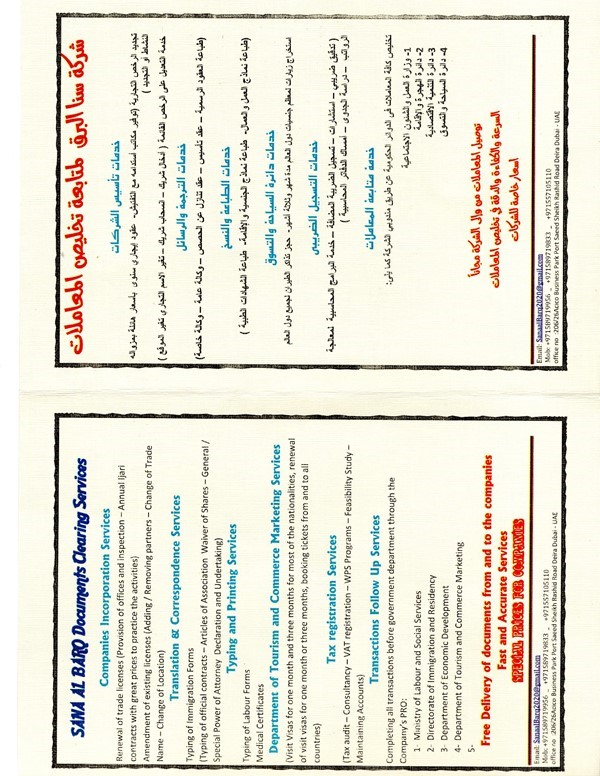 SANA AL BARQ Documents Clearing Services
Companies Incorporation Services
Renewal of trade licenses (Provision of offices and inspection – Annual Ijari
contracts with great prices to practice the activities)
Amendment of existing licenses (Adding / Removing partners – Change of Trade
Name – Change of Location)
Translation & Correspondence Services
Typing of Immigration Forms
(Typing of official contracts – Articles of Association Waiver of Shares – General /
Special Power of Attorney Declaration and Undertaking)
Typing and Printing Services
Typing of Labour Forms
Medical Certificates
Department of Tourism and Commerce Marketing Services
(Visit Visas for one month and three months for most of the nationalities, renewal
of visit visas for one month or three months, booking tickets from and to all
countries)
Tax registration Services
(Tax audit – Consultancy – VAT registration – WPS Programs – Feasibility Study –
Maintaining Accounts)
Transactions Follow Up Services
Completing all transactions before government department through the
Company's PRO:
1- Ministry of Labour and Social Services
2- Directorate of Immigration and Residency
3- Department of Economic Development
4- Department of Tourism and Commerce Marketing
5-
Free Delivery of documents from and to the companies
Fast and Accurate Services
SPECIAL PRICES FOR COMPANIES
Email: SanaalBarq2020@gmail.com
Mob: +971589719956 _ +971589719833 _ +971557105110
office no :206/26Acico Business Park Port Saeed Sheikh Rashid Road Deira Dubai - UAE
شركة سنا البرق لمتابعة تخليص المعاملات
خدمات تأسيس الشركات
تجديد الرخص التجارية (توفير مكاتب استدامه مع التفتيش- عقود ايجاري سنوى باسعار هائلة بمزواله
النشاط أو التجديد )
خدمة التعديل على الرخص القائمة ( أدخال شريك – انسحاب شريك – تغير الاسم التجاري تغير الموقع )
خدمات الترجمة والرسائل
(طباعة العقود الرسمية – عقد تأسيس – عقد تنازل عن الحصص – وكالة عامة – وكالة خاصة)
خدمات الطباعة والنسخ
(طباعة نماذج العمل والعمال- طباعة نماذج الجنسية والإقامة- طباعة الشهادات الطبية )
خدمات دائرة السياحة والتسوق
استخراج زيارات لمعظم جنسيات دول العالم مدة شهر وثلاثة أشهر- حجز تذاكر الطيران لجميع دول العالم
خدمات التسجيل الضريبي
( تدقيق ضريبي – استشارات – تسجيل الضريبة المضافة – خدمة البرامج المحاسبية لمعالجة
الرواتب – دراسة الجدوى – امساك الدفاتر المحاسبية )
خدمة متابعة المعاملات
تخليص كافة المعاملات في الدوائر الحكومية عن طريق مندوبين الشركة كما يلي:
1- وزارة العمل والشئون الاجتماعية
2- دائرة الهجرة والإقامة
3- دائرة التنمية الاقتصادية
4- دائرة السياحة والتسوق
توصيل المعاملات من والى الشركة مجانا
السرعة والكفاءة والدقة في تخليص المعاملات
اسعار خاصة للشركات
Email: SanaalBarq2020@gmail.com
Mob: +971589719956 _ +971589719833 _ +971557105110
office no :206/26Acico Business Park Port Saeed Sheikh Rashid Road Deira Dubai - UAE